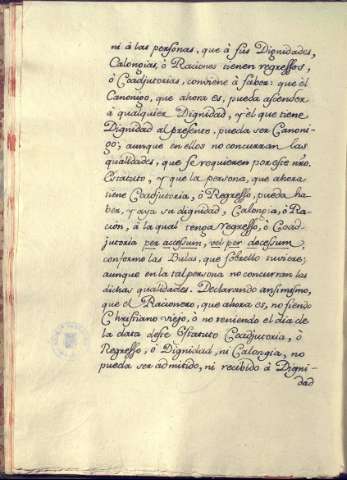 ni à las personas, que à sus Dignidades,
Calongias, ò Raciones tienen regressos,
ò Coadjutorias, conviene à saber: que el
Canonigo, que ahora es, pueda ascender
à qualquier Dignidad, y el que tiene
Dignidad al presente, pueda ser Canoni-
go; aunque en ellos no concurran las
qualidades, que se requieren por este nrõ.
Estatuto, y que la persona, que ahora
tiene Coadjutoria, ò Regresso, pueda ha-
ber, y aya su dignidad, Calongia, ò Ra-
cion, à la qual tenga regresso, ò Coad-
jutoria per accessum, vel per decessum
conforme las Bulas, que sobrello tuviere;
aunque en la tal persona no concurran las
dichas qualidades. Declarando ansimismo,
que el Racionero, que ahora es, no siendo
Christiano viejo, ò no teniendo el dia de
la data deste Estatuto Coadjutoria, ò
Regresso, ò Dignidad, ni Calongia, no
pueda ser admitido, ni recibido à Digni-
dad